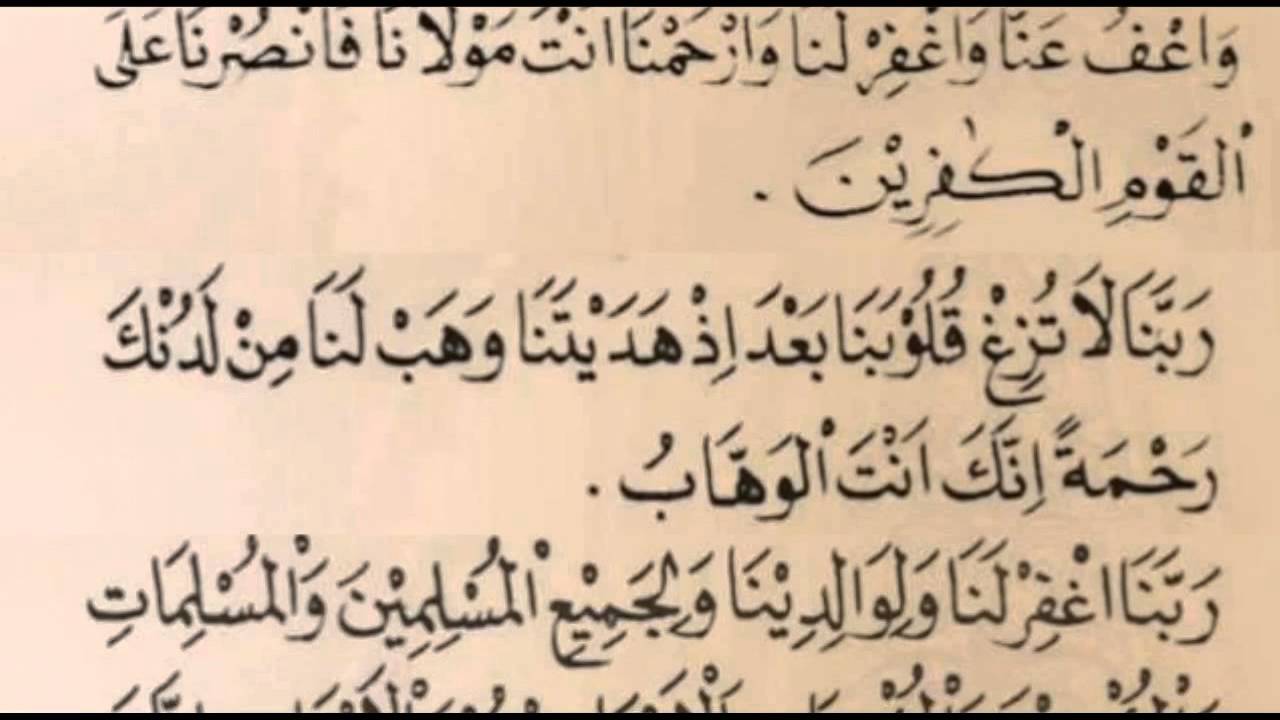 وَاعْفُ عَنَّا وَاغْفِرْ لَنَا وَارْحَمْنَا اَنْتَ مَوْلَانَا فَانْصُرْنَا عَلَى
الْقَوْمِ الْكٰفِرِيْنَ .
رَبَّنَا لَا تُزِغْ قُلُوْبَنَا بَعْدَ اِذْ هَدَيْتَنَا وَهَبْ لَنَا مِنْ لَدُنْكَ
رَحْمَةً اِنَّكَ اَنْتَ الْوَهَّابُ .
رَبَّنَا اغْفِرْ لَنَا وَلِوَالِدِيْنَا وَلِجَمِيْعِ الْمُسْلِمِيْنَ وَالْمُسْلِمَاتِ